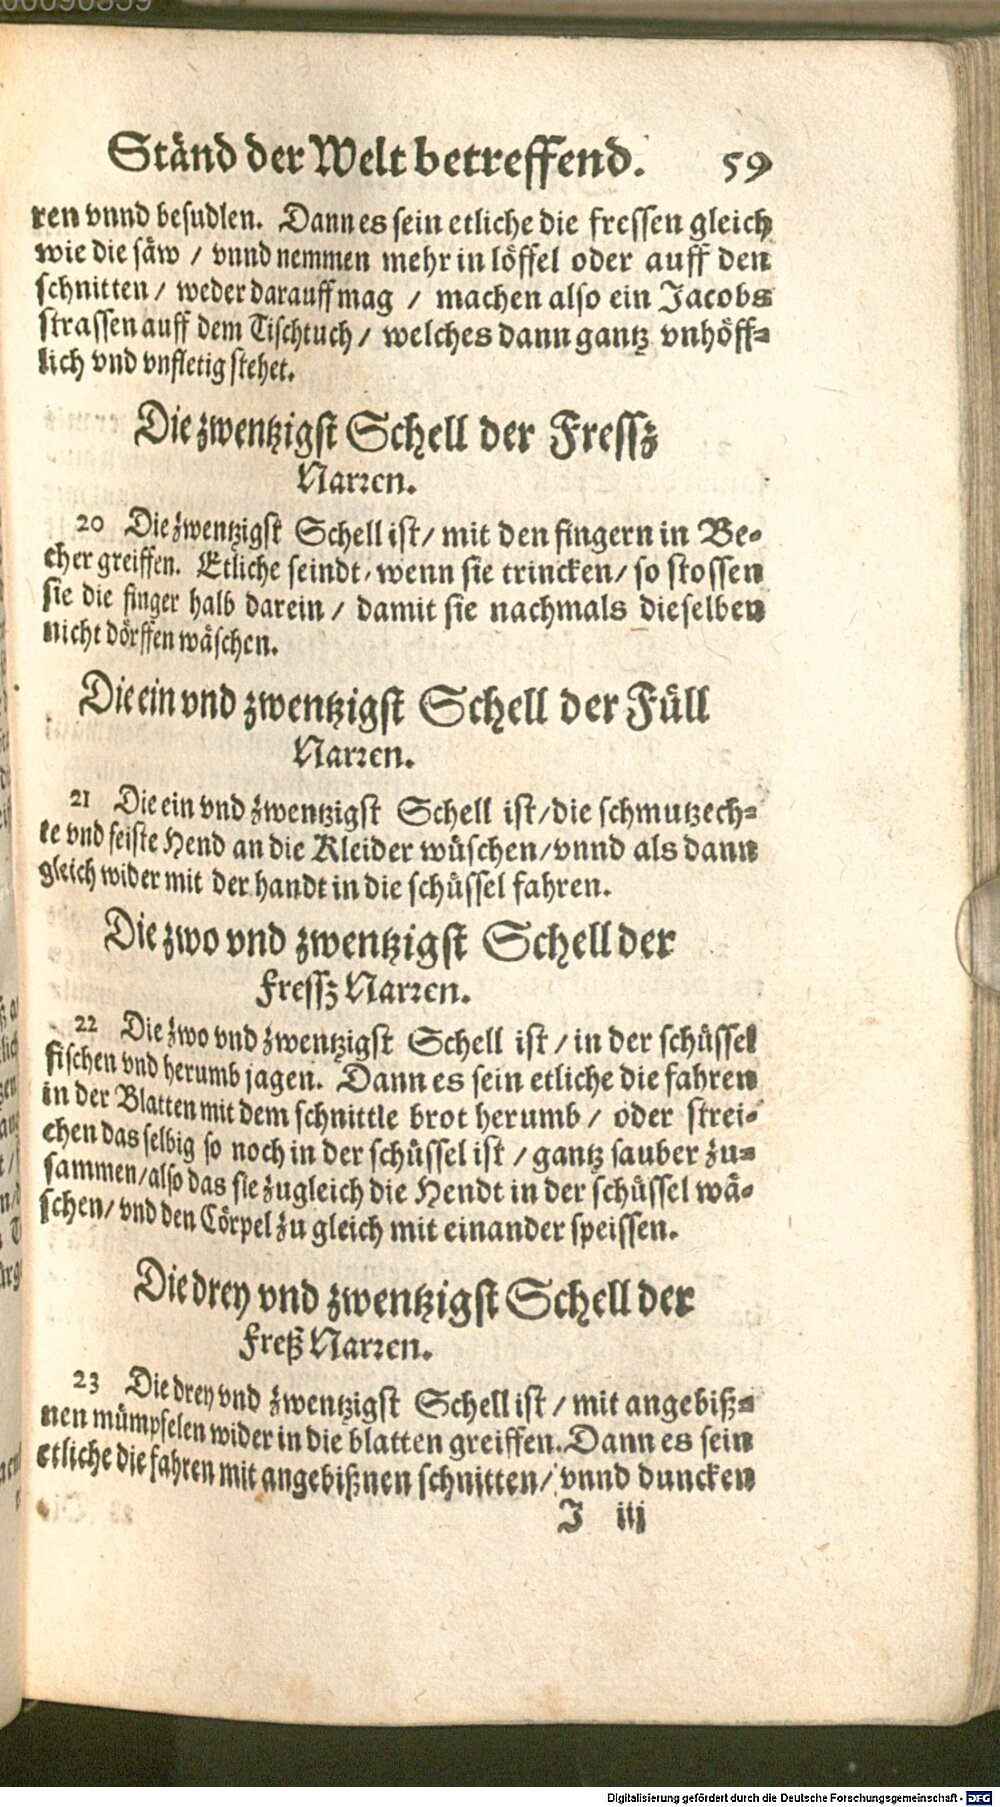 00090859
Ständ der Welt betreffend. 59
ren vnnd besudlen. Dann es sein etliche die fressen gleich
wie die säw / vnnd nemmen mehr in löffel oder auff den
schnitten / weder darauff mag / machen also ein Jacobs
strassen auff dem Tischtuch / welches dann gantz vnhöff-
lich vnd vnfletig stehet.
Die zwentzigst Schell der Fressz
Narren.
20 Die zwentzigst Schell ist / mit den fingern in Be-
cher greiffen. Etliche seindt, wenn sie trincken / so stossen
sie die finger halb darein / damit sie nachmals dieselben
nicht dörffen wäschen.
Die ein vnd zwentzigst Schell der Füll
Narren.
21 Die ein vnd zwentzigst Schell ist / die schmutzech-
te vnd feiste Hend an die Kleider wüschen / vnnd als dann
gleich wider mit der handt in die schüssel fahren.
Die zwo vnd zwentzigst Schell der
Fressz Narren.
22 Die zwo vnd zwentzigst Schell ist / in der schüssel
fischen vnd herumb jagen. Dann es sein etliche die fahren
in der Blatten mit dem schnittle brot herumb / oder strei-
chen das selbig so noch in der schüssel ist / gantz sauber zu-
sammen / also das sie zugleich die Hendt in der schüssel wä-
schen / vnd den Cörpel zu gleich mit einander speissen.
Die drey vnd zwentzigst Schell der
Freß Narren.
23 Die drey vnd zwentzigst Schell ist / mit angebiß-
nen mümpfelen wider in die blatten greiffen. Dann es sein
etliche die fahren mit angebißnen schnitten / vnnd duncken
J iij
Digitalisierung gefördert durch die Deutsche Forschungsgemeinschaft - DFG